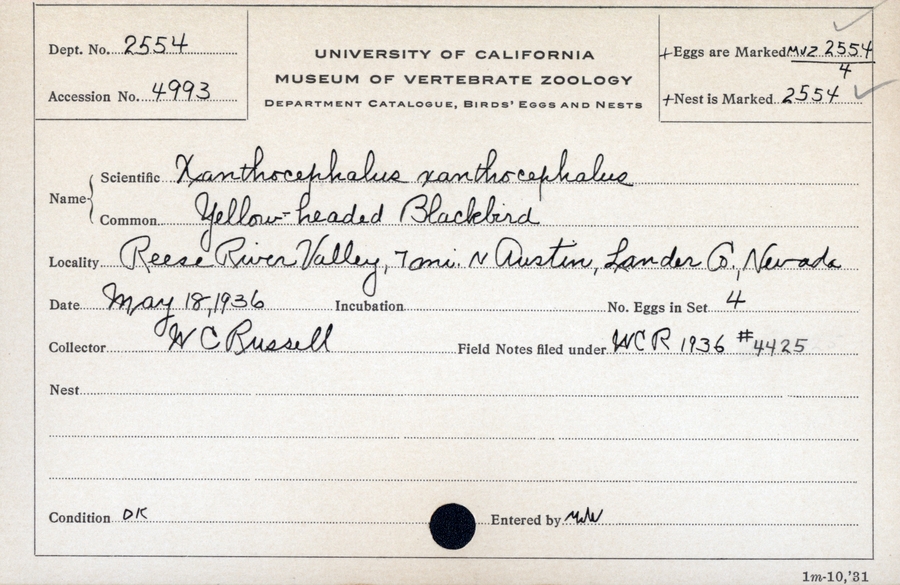 Dept. No. 2554
Accession No. 4993
UNIVERSITY OF CALIFORNIA
MUSEUM OF VERTEBRATE ZOOLOGY
DEPARTMENT CATALOGUE, BIRDS' EGGS AND NESTS
+Eggs are Marked MVZ 2554
4
+Nest is Marked 2554
Name
Scientific Xanthocephalus xanthocephalus
Common Yellow-headed Blackbird
Locality Reese River Valley, 7 mi. N Austin, Lander Co., Nevada
Date May 18, 1936 Incubation No. Eggs in Set 4
Collector W C Russell Field Notes filed under WCR 1936 #4425
Nest
Condition OK Entered by
1m-10,'31